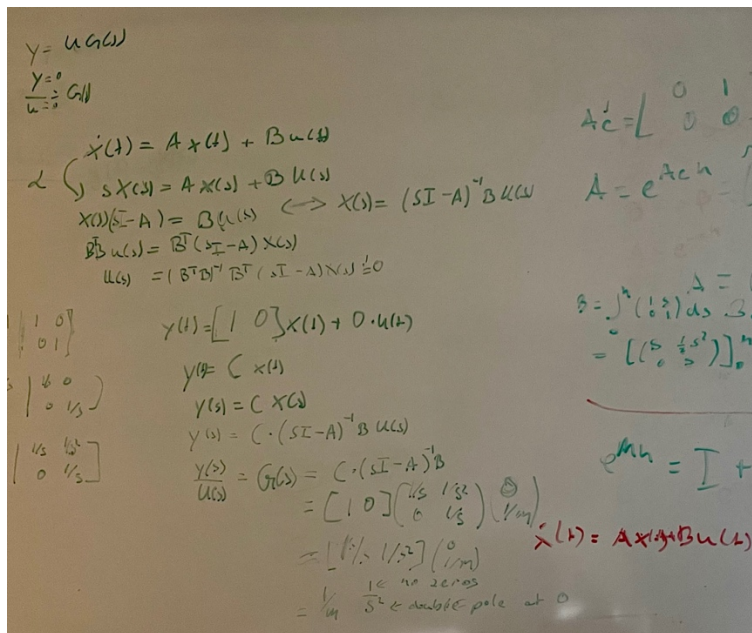 Y = U G(s)
Y = 0
u = 0
G(s)
ẋ(t) = A x(t) + B u(t)
s X(s) = A X(s) + B U(s)
X(s)(sI-A) = B U(s) ⟷ X(s) = (sI-A)⁻¹ B U(s)
BᵀB u(s) = Bᵀ(sI-A) X(s)
U(s) = (BᵀB)⁻¹ Bᵀ (sI-A) X(s) = 0
y(t) = [1 0] x(t) + 0·u(t)
y(t) = C x(t)
y(s) = C X(s)
y(s) = C·(sI-A)⁻¹ B U(s)
y(s)/U(s) = G(s) = C·(sI-A)⁻¹B
= [1 0] (1/s 1/s² ; 0 1/s) (0 ; 1/m)
= [1/s 1/s²] (0 ; 1/m)
= 1/m 1/s² ← no zeros
← double pole at 0
| 1 0
0 1 |
0 1/s )
| 1/s 1/s²
0 1/s ]
Ac = [ 0 1
0 0
A = e^{Ac h} =
A =
B = ∫₀ʰ (1 s ; 0 1) ds B
= [(s ½s² ; 0 s)]₀ʰ
= I +
ẋ(t) = A x(t) + B u(t)